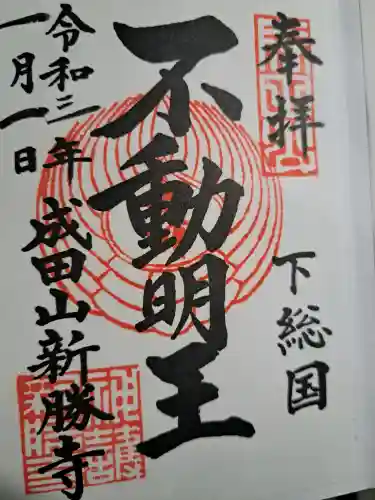 奉拝
下総国
不動明王
令和三年
一月一日
成田山新勝寺